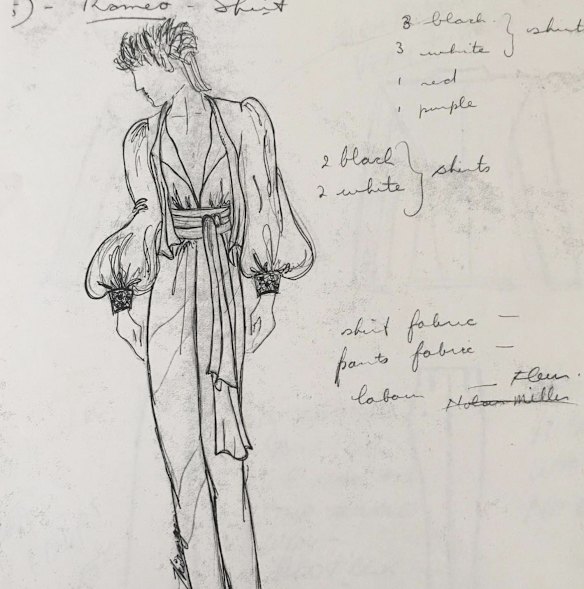 5) - Romeo - Shirt
3 black
3 white } shirts
1 red
1 purple
2 black
2 white } shirts
shirt fabric -
pants fabric -
labour - Fleur.
Nolan Miller